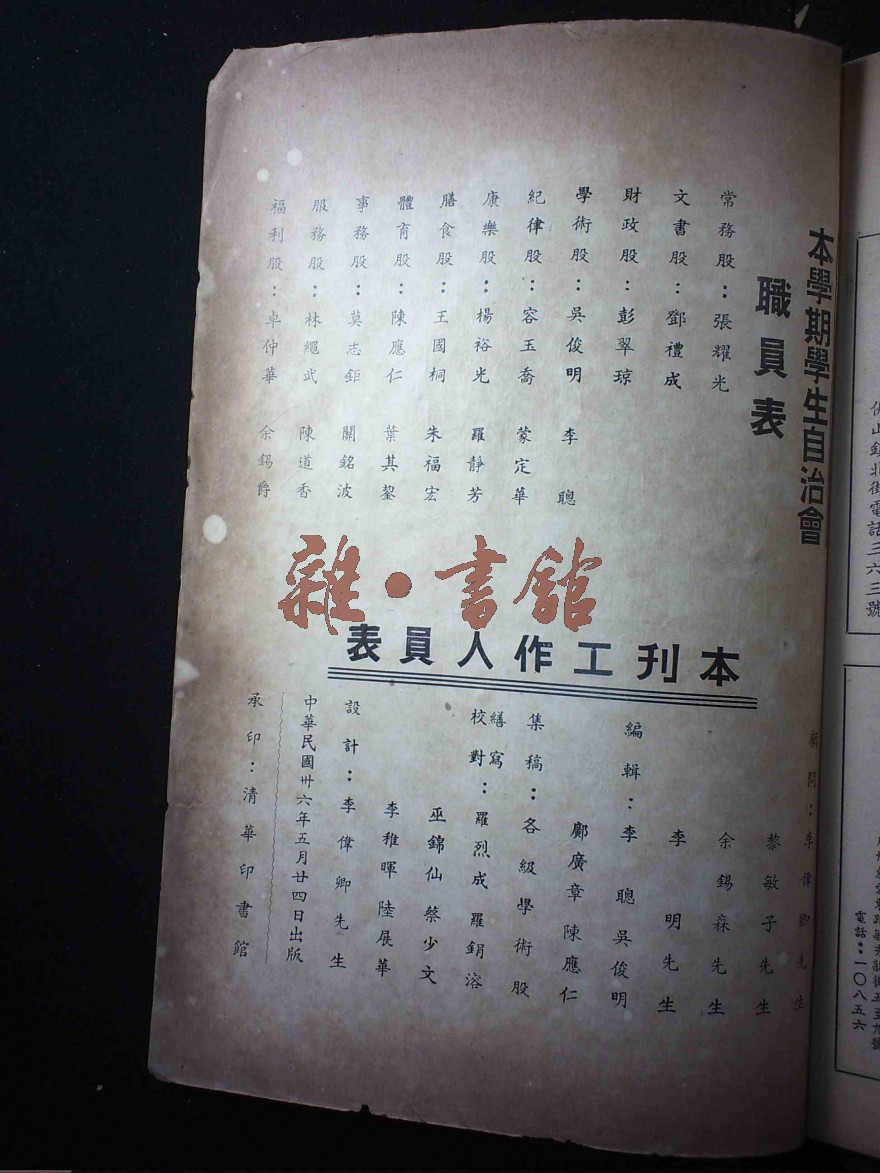 本學期學生自治會
職員表
常務股：張耀光
文書股：鄧禮成
財政股：彭翠琼
學術股：吳俊明 李聰
紀律股：容玉喬 蒙定華
康樂股：楊裕光 羅靜芳
膳食股：王國桐 朱福宏
體育股：陳應仁 葉其鋆
事務股：莫志鉅 關銘波
服務股：林繩武 陳道香
福利股：卓仲華 余錫爵
雜·書館
本刊工作人員表
顧問：李偉卿先生
黎敏子先生
余錫森先生
李明先生
編輯：李聰吳俊明
鄺廣章陳應仁
集稿：各級學術股
繕寫
校對：羅烈成羅鋗溶
巫錦仙蔡少文
李稚暉陸展華
設計：李偉卿先生
中華民國卅六年五月廿四日出版
承印：清華印書館
佛山鎮北街電話三六三號
電話：一〇八五六